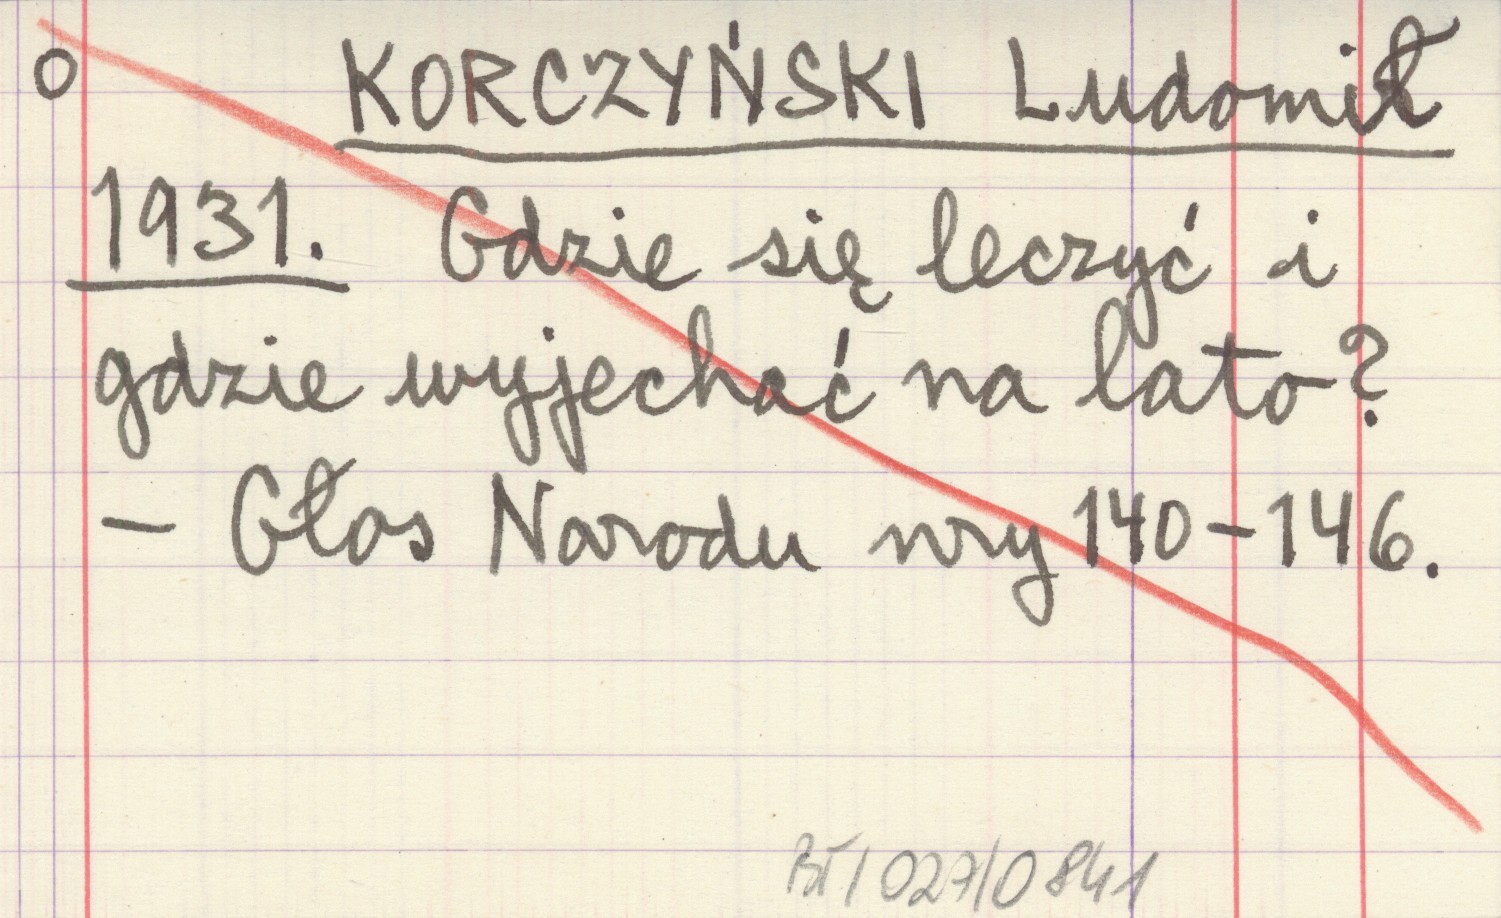 o KORCZYŃSKI Ludomił
1931. Gdzie się leczyć i
gdzie wyjechać na lato?
– Głos Narodu nry 140–146.
BT/027/0841